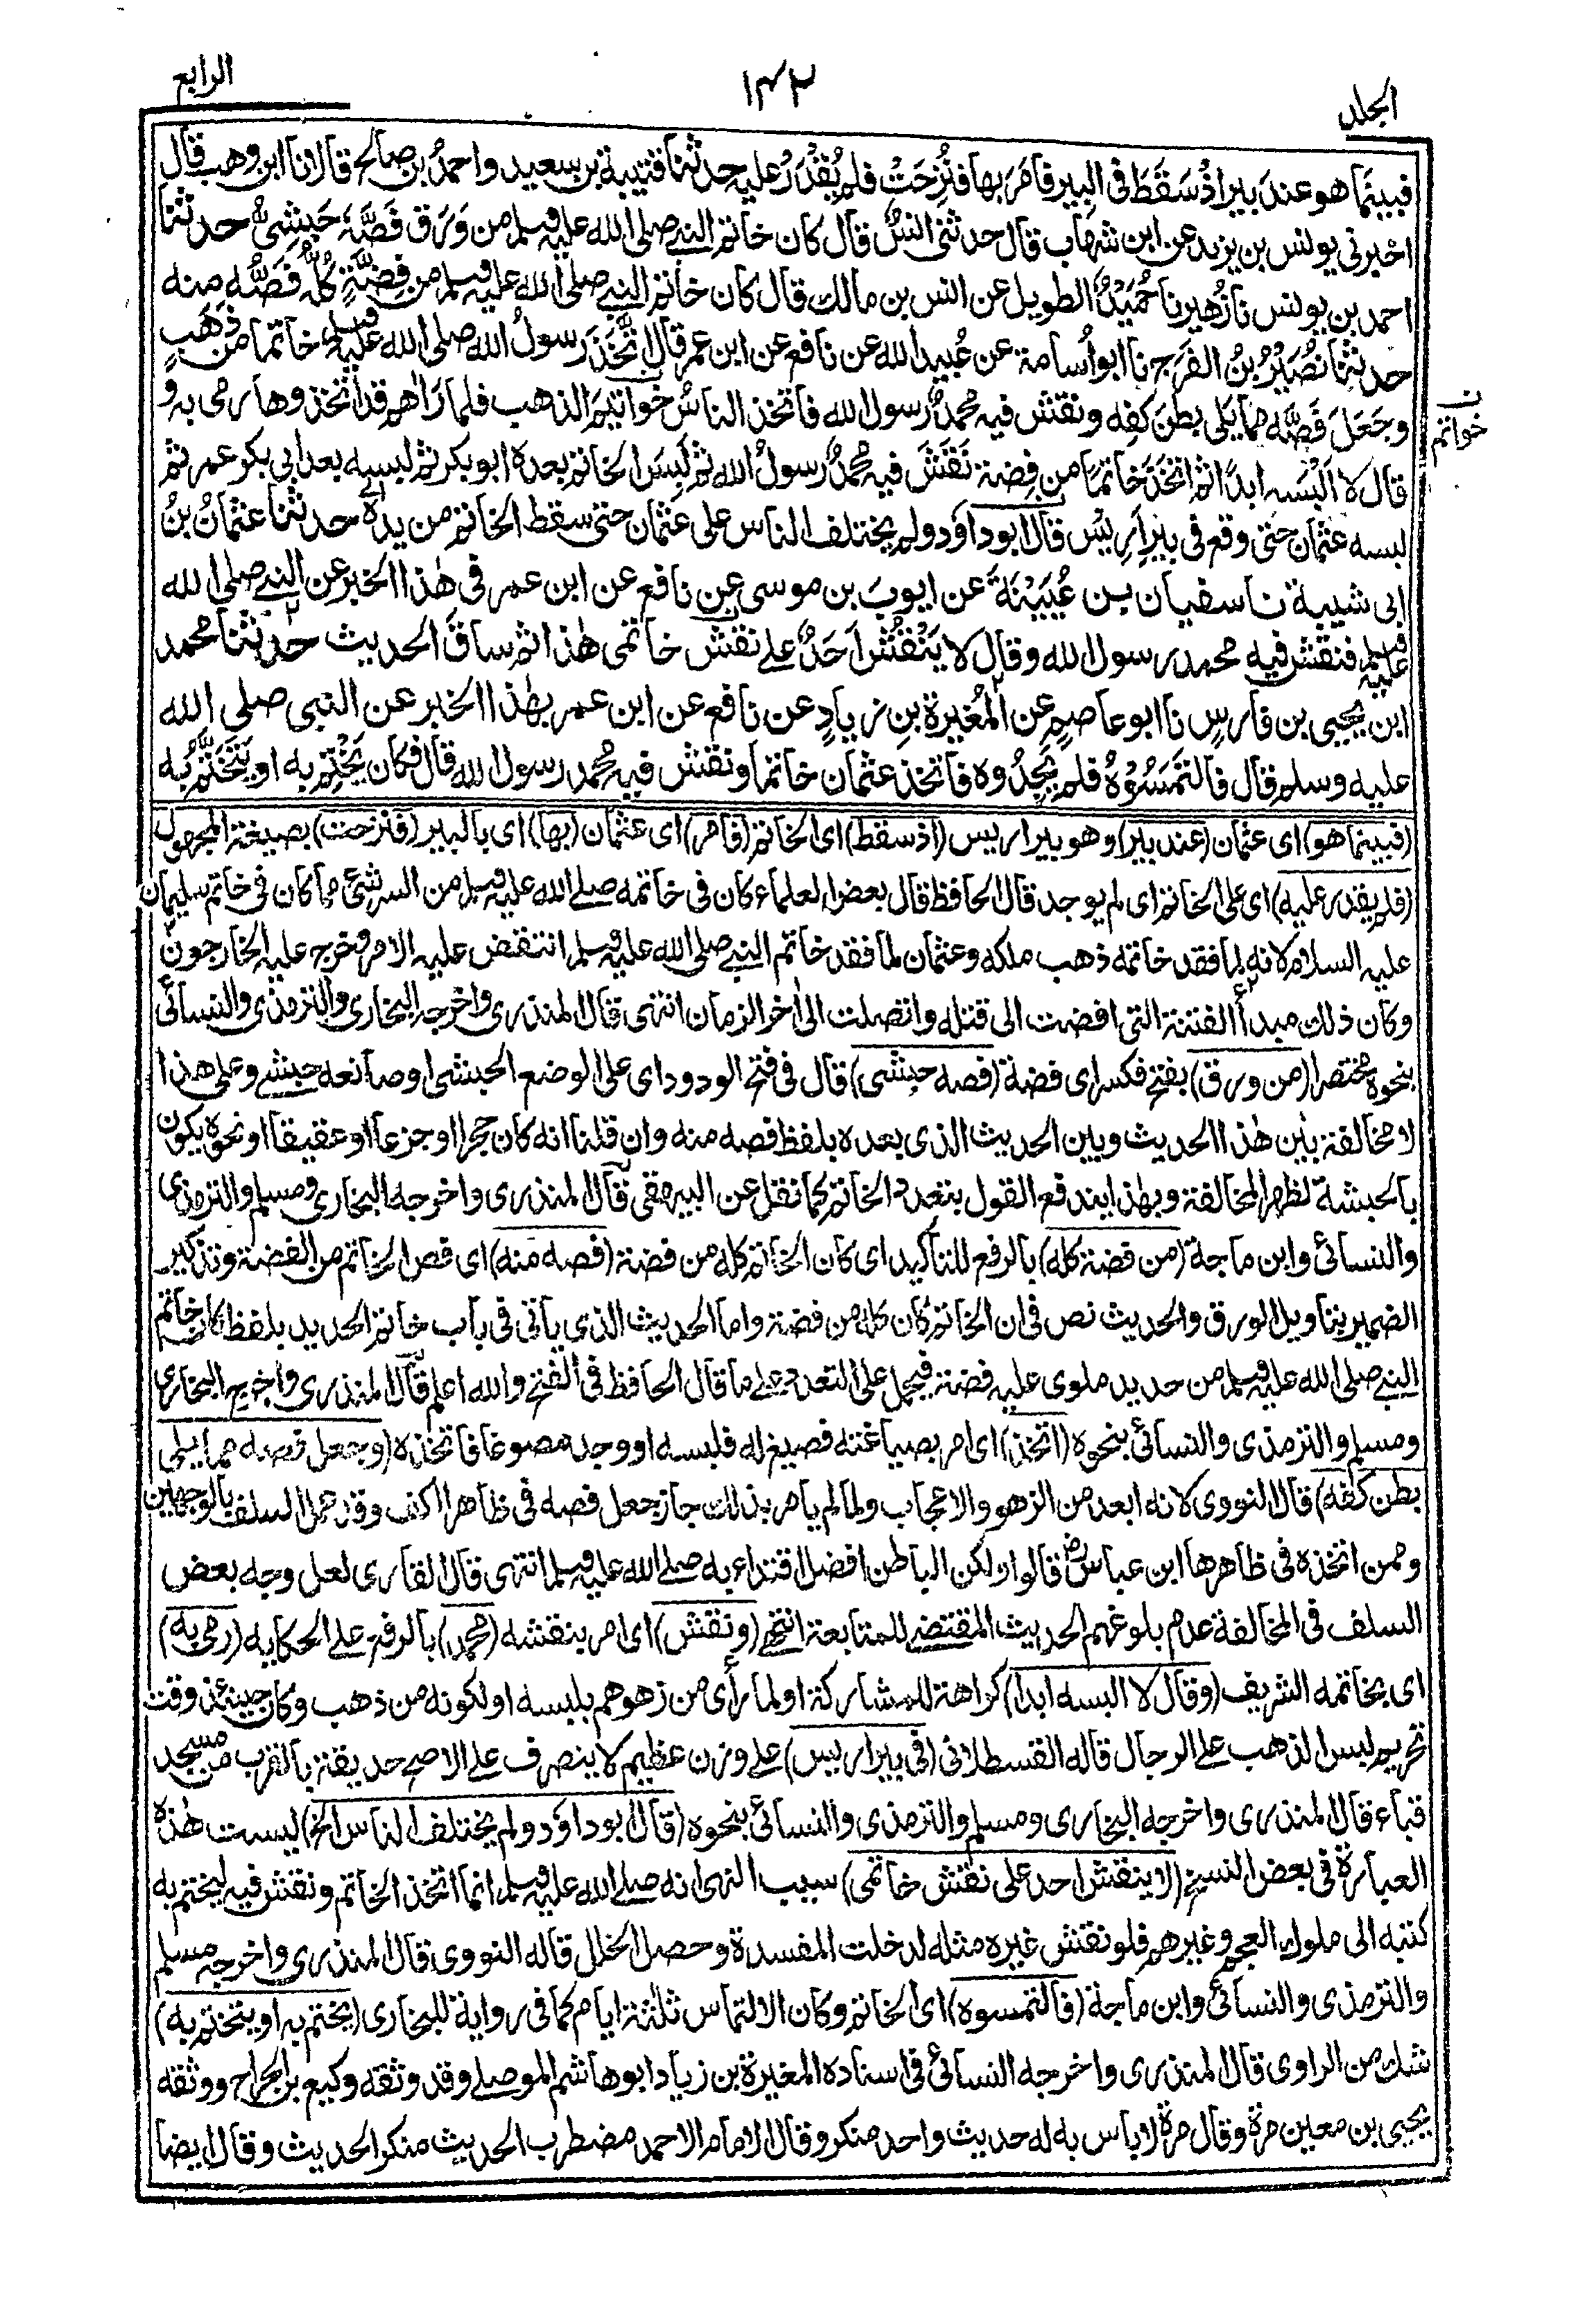 الجلد
١٤٢
الرابع
فبينما هو عندَ بيرٍ اذْ سَقَطَ فى البير فاَمَرَ بها فنُزِحَتْ فلم يُقْدَرْ عليه حدثنا قتيبة بن سعيد واحمدُ بن صالح قالا نا ابن وهب قال
اخبرنى يونس بن يزيد عن ابن شهاب قال حدثنى انسٌ قال كان خاتم النبى صلى الله عليه وسلم من وَرِق فَصُّهٗ حَبَشِىٌّ حدثنا
احمد بن يونس نا زُهير نا حُمَيْدٌ الطويل عن انس بن مالك قال كان خاتم النبى صلى الله عليه وسلم من فِضَّةٍ كُلُّهٗ فَصُّهٗ منه
حدثنا نُصَيْرُ بنُ الفَرَج نا ابو اُسامة عن عُبيد الله عن نافع عن ابن عمر قال اتَّخَذَ رسولُ الله صلى الله عليه وسلم خاتما من ذَهَبٍ
وجَعَلَ فَصَّهٗ مما يَلى بطنَ كفِهٖ ونقش فيه محمدٌ رسول الله فاتخذ الناسُ خواتيم الذهب فلما رَاٰهم قد اتخذوها رمى به و
خواتم
قال لا اَلْبَسُه ابداً ثم اتخذَ خاتمًا من فِضة نَقَشَ فيه محمدٌ رسولُ الله ثم لَبِسَ الخاتمَ بعده ابوبكر ثم لبسه بعد ابى بكر عمر ثم
لبسه عثمان حتى وقع فى بِيْرِ اَرِيْس قال ابو داؤد ولم يختلف الناس على عثمان حتى سقط الخاتم من يده حدثنا عثمانُ بنُ
ابى شيبة نا سفيان بن عُيَيْنَةَ عن ايوبَ بن موسى عن نافع عن ابن عمر فى هٰذا الخبر عن النبى صلى الله
عليه وسلم فنقش فيه محمد رسول الله وقال لا يَنْقُشْ اَحَدٌ على نقش خاتمى هٰذا ثم ساقَ الحديث حدثنا محمد
ابن يحيى بن فارسٍ نا ابو عاصمٍ عن المُغيرة بنِ زيادٍ عن نافع عن ابن عمر بهٰذا الخبر عن النبى صلى الله
عليه وسلم قال فالتَمَسُوْهُ فلم يَجِدُوه فاتخذ عثمان خاتما ونقش فيه محمد رسول الله قال فكان يَخْتِمُ به او يَتَخَتَّمُ به
(فبينما هو) اى عثمان (عند بير) وهو بير اريس (اذ سقط) اى الخاتم (فامر) اى عثمان (بها) اى بالبير (فنزحت) بصيغة المجهول
(فلم يقدر عليه) اى على الخاتم اى لم يوجد قال الحافظ قال بعض العلماء كان فى خاتمه صلى الله عليه وسلم من السر شئ مما كان فى خاتم سليمان
عليه السلام لانه لما فقد خاتمه ذهب ملكه وعثمان لما فقد خاتم النبى صلى الله عليه وسلم انتقض عليه الامر وخرج عليه الخارجون
وكان ذلك مبدأ الفتنة التى افضت الى قتله واتصلت الى اٰخر الزمان انتهى قال المنذرى واخرجه البخارى والترمذى والنسائى
بنحوه مختصرا (من ورق) بفتح فكسر اى فضة (فصه حبشى) قال فى فتح الودود اى على الوضع الحبشى او صانعه حبشى وعلى هذا
لا مخالفة بين هٰذا الحديث وبين الحديث الذى بعده بلفظ فصه منه وان قلنا انه كان حجرا او جزعا او عقيقا او نحوه يكون
بالحبشة لظهر المخالفة وبهٰذا يندفع القول بتعدد الخاتم كما نقل عن البيهقى قال المنذرى واخرجه البخارى ومسلم والترمذى
والنسائى وابن ماجة (من فضة كله) بالرفع للتاكيد اى كان الخاتم كله من فضة (فصه منه) اى فص الخاتم من الفضة وتذكير
الضمير بتاويل الورق والحديث نص فى ان الخاتم كان كله من فضة واما الحديث الذى ياتى فى باب خاتم الحديد بلفظ كان خاتم
النبى صلى الله عليه وسلم من حديد ملوى عليه فضة فيحمل على التعدد على ما قال الحافظ فى الفتح والله اعلم قال المنذرى واخرجه البخارى
ومسلم والترمذى والنسائى بنحوه (اتخذ) اى امر بصياغته فصيغ له فلبسه او وجده مصوغا فاتخذه (وجعل فصه مما يلى
بطن كفه) قال النووى لانه ابعد من الزهو والاعجاب ولما لم يامر بذلك جاز جعل فصه فى ظاهر الكف وقد عمل السلف بالوجهين
وممن اتخذه فى ظاهرها ابن عباس رض قالوا ولكن الباطن افضل اقتداء به صلى الله عليه وسلم انتهى قال القارى لعل وجه بعض
السلف فى المخالفة عدم بلوغهم الحديث المقتضى للمتابعة انتهى (ونقش) اى امر بنقشه (محمد) بالرفع على الحكاية (رمى به)
اى بخاتمه الشريف (وقال لا البسه ابدا) كراهة للمشاركة او لما رأى من زهوهم بلبسه او لكونه من ذهب وكان حينئذ وقت
تحريم لبس الذهب على الرجال قاله القسطلانى (فى بير اريس) على وزن عظيم لا ينصرف على الاصح حديقة بالقرب من مسجد
قباء قال المنذرى واخرجه البخارى ومسلم والترمذى والنسائى بنحوه (قال ابو داؤد ولم يختلف الناس الخ) ليست هٰذه
العبارة فى بعض النسخ (لا ينقش احد على نقش خاتمى) سبب النهى انه صلى الله عليه وسلم انما اتخذ الخاتم ونقش فيه ليختم به
كتبه الى ملوك العجم وغيرهم فلو نقش غيره مثله لدخلت المفسدة وحصل الخلل قاله النووى قال المنذرى واخرجه مسلم
والترمذى والنسائى وابن ماجة (فالتمسوه) اى الخاتم وكان الالتماس ثلٰثة ايام كما فى رواية للبخارى (يختم به او يتختم به)
شك من الراوى قال المنذرى واخرجه النسائى فى اسناده المغيرة بن زياد ابو هاشم الموصلى وقد وثقه وكيع بن الجراح ووثقه
يحيى بن معين مرة وقال مرة لا باس به له حديث واحد منكر وقال الامام الاحمد مضطرب الحديث منكر الحديث وقال ايضا